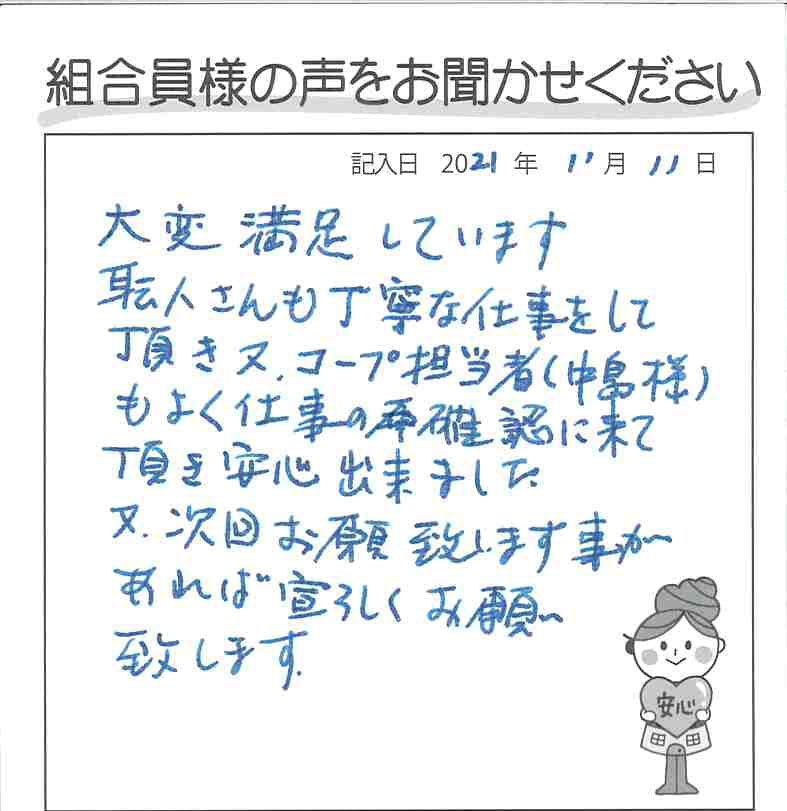 組合員様の声をお聞かせください
記入日 2021年 11月 11日
大変満足しています
転人さんも丁寧な仕事をして
頂き又、コープ担当者(中島様)
もよく仕事の再確認に来て
頂き安心出来ました
又、次回お願致します事が
あれば宜ろしくお願い
致します。
安心